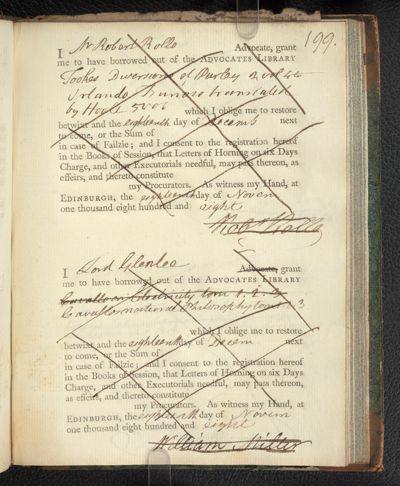 199.
I Mr Robert Rollo Advocate, grant
me to have borrowed out of the ADVOCATES LIBRARY
Tookes Diversions of Purley 2 vol 4to
Orlando Furioso translated
by Hoole 5 vols which I oblige me to restore
betwixt and the eighteenth day of Decemb next
to come, or the Sum of
in case of Failzie; and I consent to the registration hereof
in the Books of Session, that Letters of Horning on six Days
Charge, and other Executorials needful, may pass thereon, as
effeirs, and thereto constitute
my Procurators. As witness my Hand, at
EDINBURGH, the eighteenth day of Novem
one thousand eight hundred and eight
Robt Rollo
I Lord Glenlee Advocate, grant
me to have borrowed out of the ADVOCATES LIBRARY
Cavallo on Electricity tom 1. 2. 3
Cavallo natural Philosophy tom 3
which I oblige me to restore
betwixt and the eighteenth day of Decem next
to come, or the Sum of
in case of Failzie; and I consent to the registration hereof
in the Books of Session, that Letters of Horning on six Days
Charge, and other Executorials needful, may pass thereon,
as effeirs, and thereto constitute
my Procurators. As witness my Hand, at
EDINBURGH, the eighteenth day of Novem
one thousand eight hundred and eight
William Miller